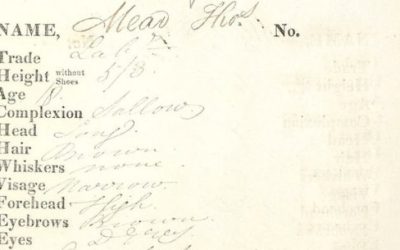 NAME, Mead Thos. No.
Trade Labr
Height without Shoes 5/3.
Age 18
Complexion Sallow
Head Long
Hair Brown
Whiskers none
Visage Narrow
Forehead High
Eyebrows Brown
Eyes D Grey